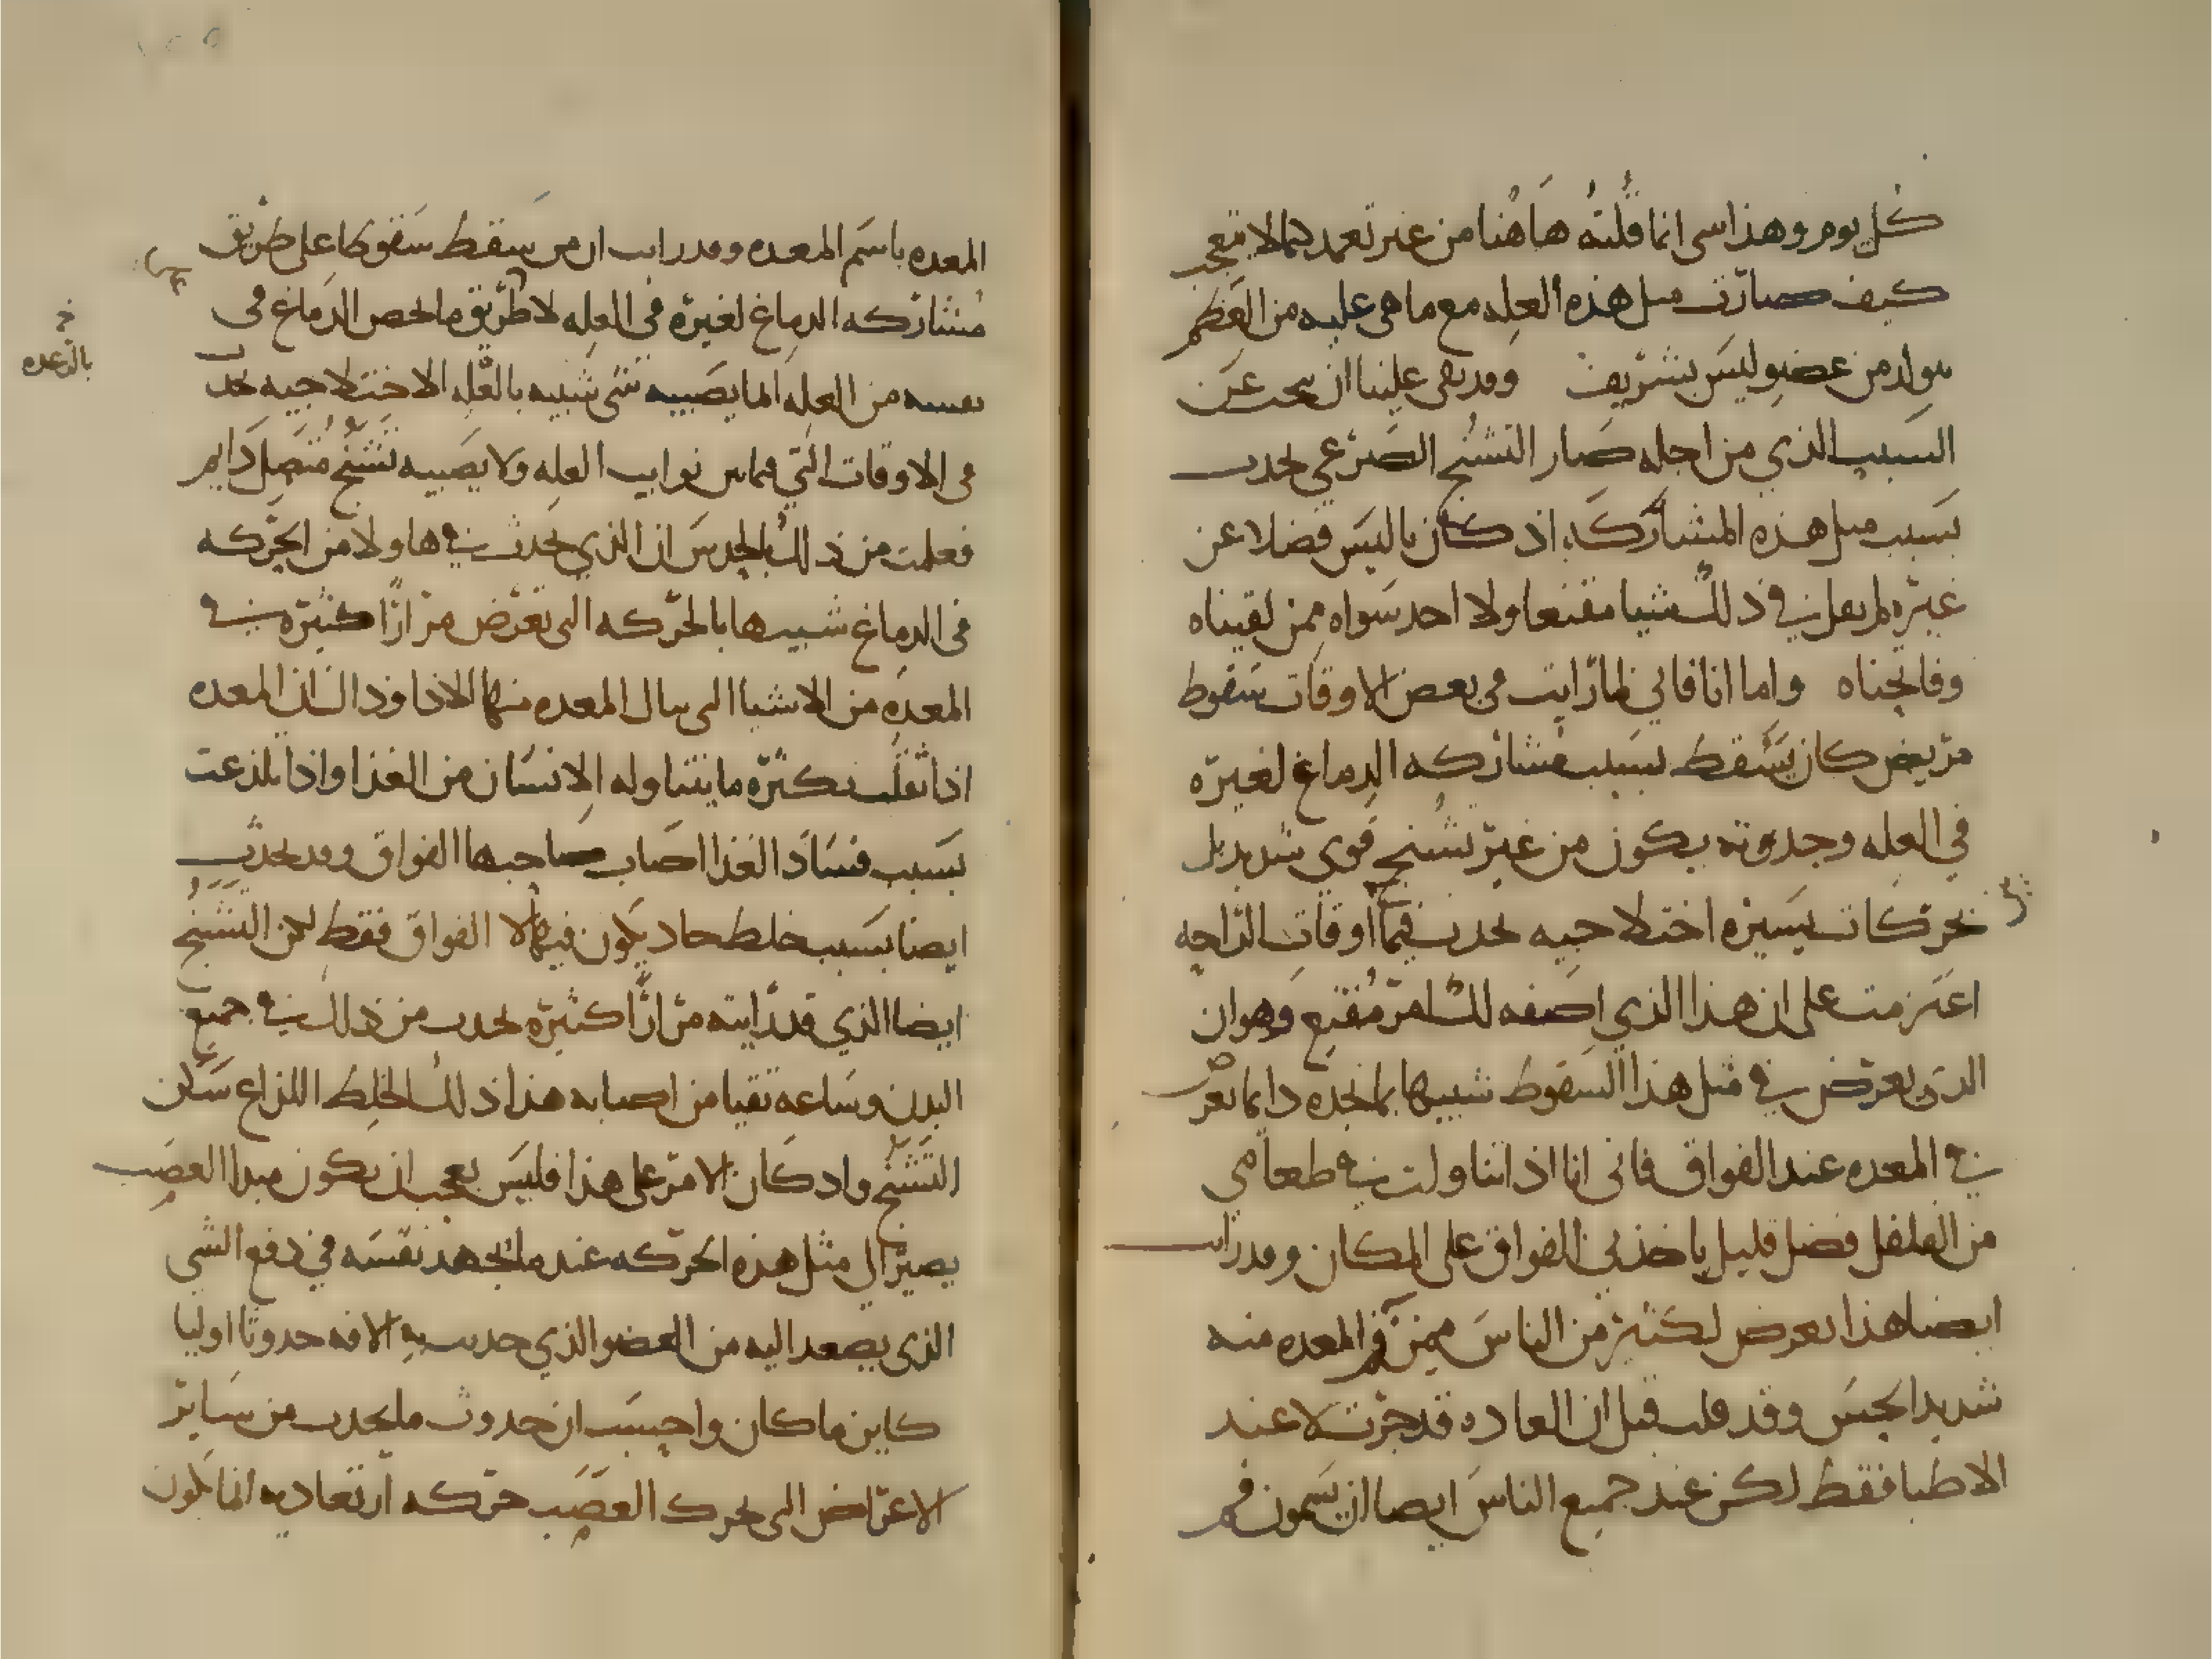 كل يوم وهذا سى انما قلته هاهنا من غير تعمد كيما لا تتعجب
كيف صارت مثل هذه العله مع ما هى عليه من العظم
تتولد من عضو ليس بشريف وقد بقى علينا ان نبحث عن
السبب الذي من اجله صار التشنج الصرعي يحدث
بسبب مثل هذه المشاركه اذ كان باليس فضلا عن
غيره لم يقل في ذلك شيا مقنعا ولا احد سواه ممن لقيناه
وفاتحناه واما انا فاني لما رايت في بعض الاوقات سقوط
مريض كان يسقط بسبب مشاركه الدماغ لغيره
في العله وجدوثه يكون من غير تشنج قوي شديد بل
بحركات يسيره اختلاجيه تحدث فيما اوقات الراحه
اعتزمت على ان هذا الذي اصفه لك امر مقنع وهو ان
الذى يعرض في مثل هذا السقوط شبيها بما نجده دايما يعرض
في المعده عند الفواق فانى انا اذا تناولت في طعامي
من الفلفل فضل قليل ياخذني الفواق على المكان وقد رايت
ايضا هذا يعرض لكثير من الناس ممن فم المعده منه
شديد الحس وقد قلت قبل ان العاده قد جرت لا عند
الاطبا فقط لكن عند جميع الناس ايضا ان يسمون فم
المعده باسم المعده وقد رايت ان من سقط سقوطا على طريق
مشاركه الدماغ لغيره في العله لا طريق ما يخص الدماغ في
نفسه من العله انما يصيبه شى شبيه بالعله الاختلاجيه تحدث
في الاوقات التي فيما بين نوايب العله ولا يصيبه تشنج متصل دايم
بالرعده
فعلمت من ذلك بالحدس ان الذي يحدث في هاولا من الحركه
في الدماغ شبيها بالحركه التى تعرض مرارا كثيره في
المعده من الاشيا التى ينال المعده منها الاذا وذاك ان المعده
اذا ثقلت بكثره ما يتناوله الانسان من الغذا واذا تلذعت
بسبب فساد الغذا اصاب صاحبها الفواق وقد يحدث
ايضا بسبب خلط حاد يكون فيها لا الفواق فقط لكن التشنج
ايضا الذي قد رايته مرارا كثيره يحدث من ذلك في جميع
البدن وساعه تقيا من اصابه هذا ذلك الخلط اللذاع سكن
التشنج واذ كان الامر على هذا فليس بعجب ان يكون مبدا العصب
يصير الى مثل هذه الحركه عند ما يجهد نفسه في دفع الشي
الذى يصعد اليه من العضو الذي حدثت به الافه حدوثا اوليا
كاين ما كان واحسب ان حدوث ما يحدث من ساير
الاعراض التى تحرك العصب حركه ارتعاديه انما يكون